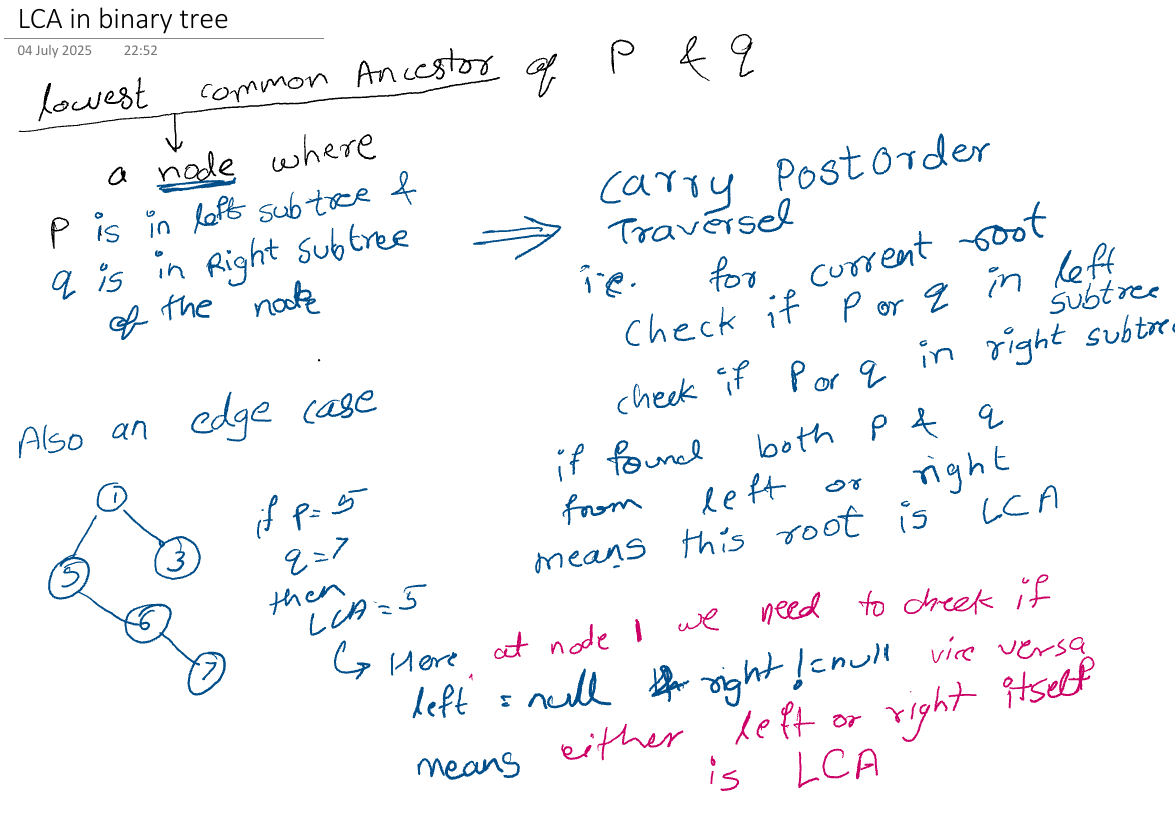 LCA in binary tree
04 July 2025 22:52
lowest common Ancestor of P & q
a node where
P is in left subtree &
q is in Right subtree
of the node
Carry PostOrder
Traversel
i.e. for current root
Check if P or q in left
subtree
check if P or q in right subtree
if found both P & q
from left or right
means this root is LCA
Also an edge case
1
5
3
6
7
if P = 5
q = 7
then
LCA = 5
Here, at node 1 we need to check if
left = null & right != null vice versa
means either left or right itself
is LCA